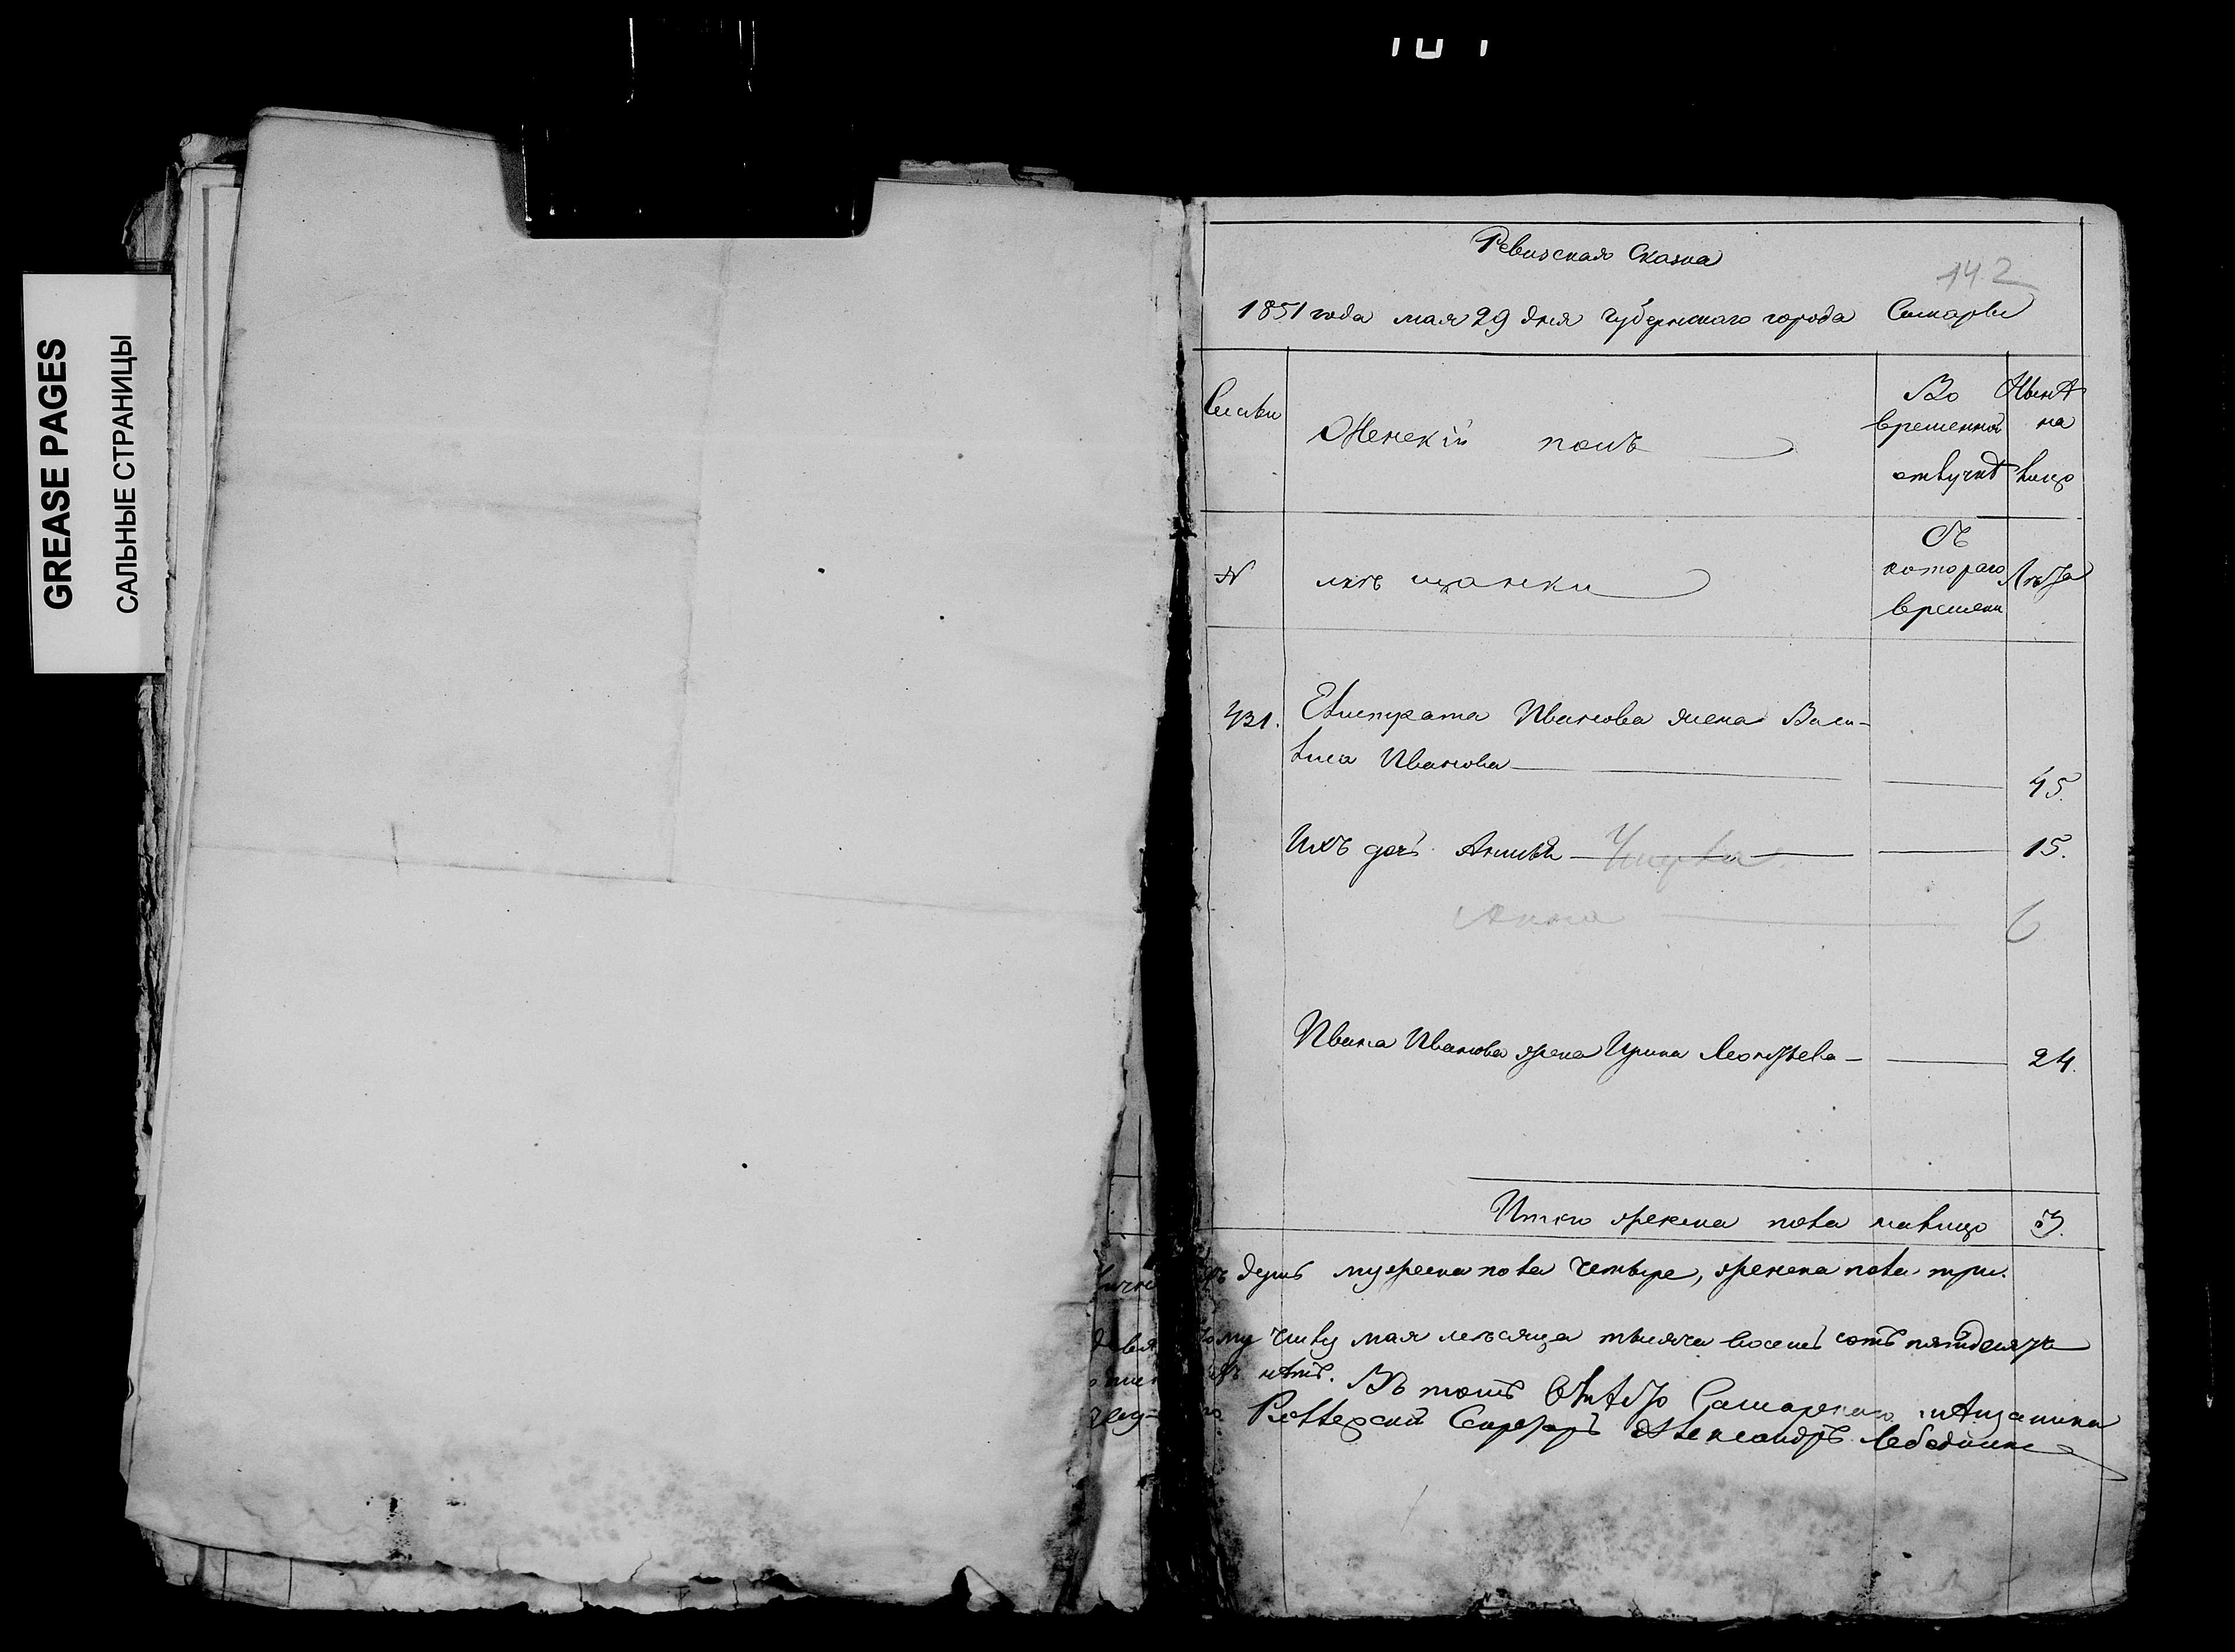 GREASE PAGES
САЛЬНЫЕ СТРАНИЦЫ
Ревизская Сказка
142
1851 года мая 29 дня губернскаго города Самары
Семьи
Женскій полъ
Во временной отлучкѣ
Нынѣ на лицо
№
мѣщанки
Съ котораго времени
Лѣта
431. Евстрата Иванова жена Васи-
лиса Иванова 45.
Ихъ дочь 15.
Анна 6
Ивана Иванова жена Ирина Леонтьева 24.
Итого женска пола на лицо 3.
душъ мужеска пола четыре, женска пола три.
числу мая месяца тысяча восемь сотъ пятдесятъ
нѣтъ. Въ томъ вмѣсто Самарскаго мѣщанина
Коллежской Секретарь Александръ